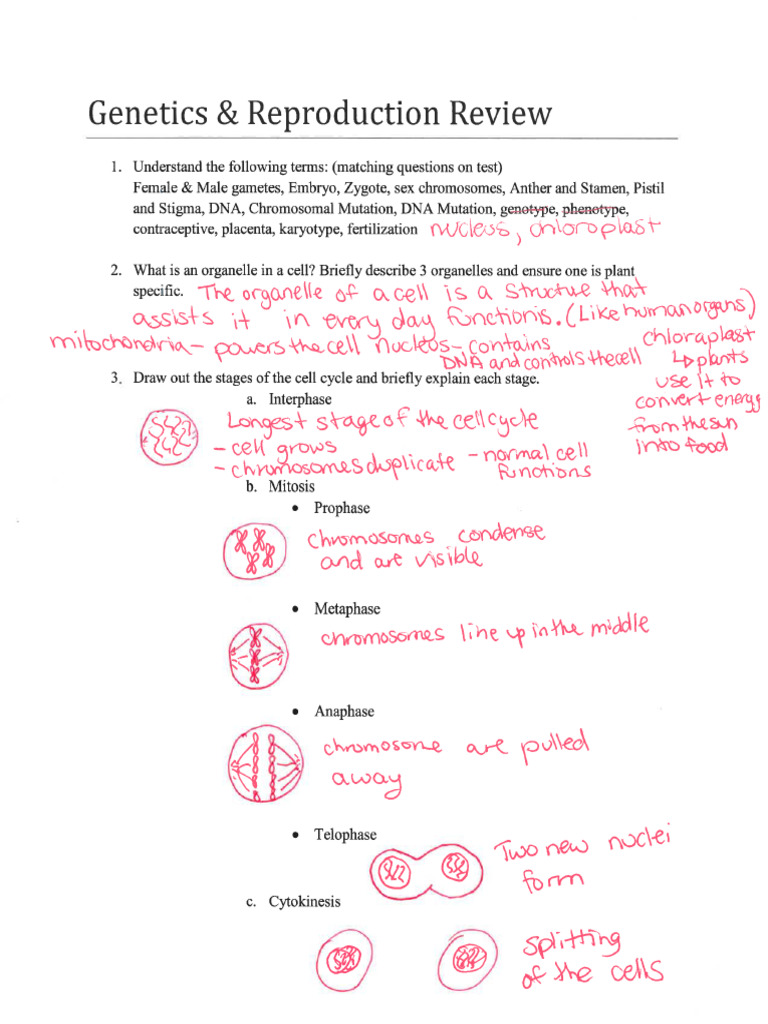 Genetics & Reproduction Review
1. Understand the following terms: (matching questions on test)
Female & Male gametes, Embryo, Zygote, sex chromosomes, Anther and Stamen, Pistil
and Stigma, DNA, Chromosomal Mutation, DNA Mutation, genotype, phenotype,
contraceptive, placenta, karyotype, fertilization nucleus, chloroplast
2. What is an organelle in a cell? Briefly describe 3 organelles and ensure one is plant
specific. The organelle of a cell is a structure that
assists it in every day functions. (Like human organs)
mitochondria - powers the cell nucleus - contains
DNA and controls the cell
chloraplast
↳ plants
use it to
convert energy
from the sun
into food
3. Draw out the stages of the cell cycle and briefly explain each stage.
a. Interphase
Longest stage of the cell cycle
- cell grows
- chromosomes duplicate - normal cell
functions
b. Mitosis
• Prophase
chromosomes condense
and are visible
• Metaphase
chromosomes line up in the middle
• Anaphase
chromosome are pulled
away
• Telophase
Two new nuclei
form
c. Cytokinesis
splitting
of the cells